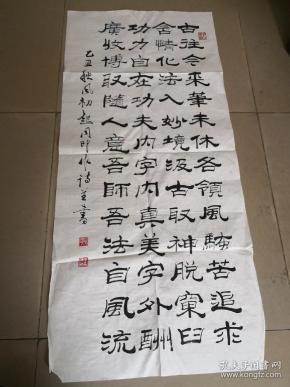 古往今來筆未休各領風騷苦追求
舍情化法入妙境汲古取神脫窠臼
功力自在功夫內字內真美字外酬
廣收博取隨人意吾師吾法自風流
丑秋風初起作詩並書
孔夫子旧书网